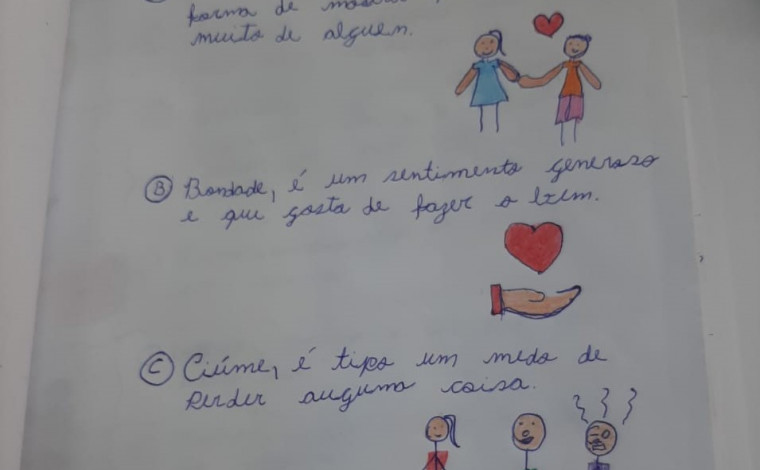 forma de
muito de alguen.
B Bondade, é um sentimento generoso
e que gosta de fazer o bem.
C Ciúme, é tipo um medo de
perder auguma coisa.